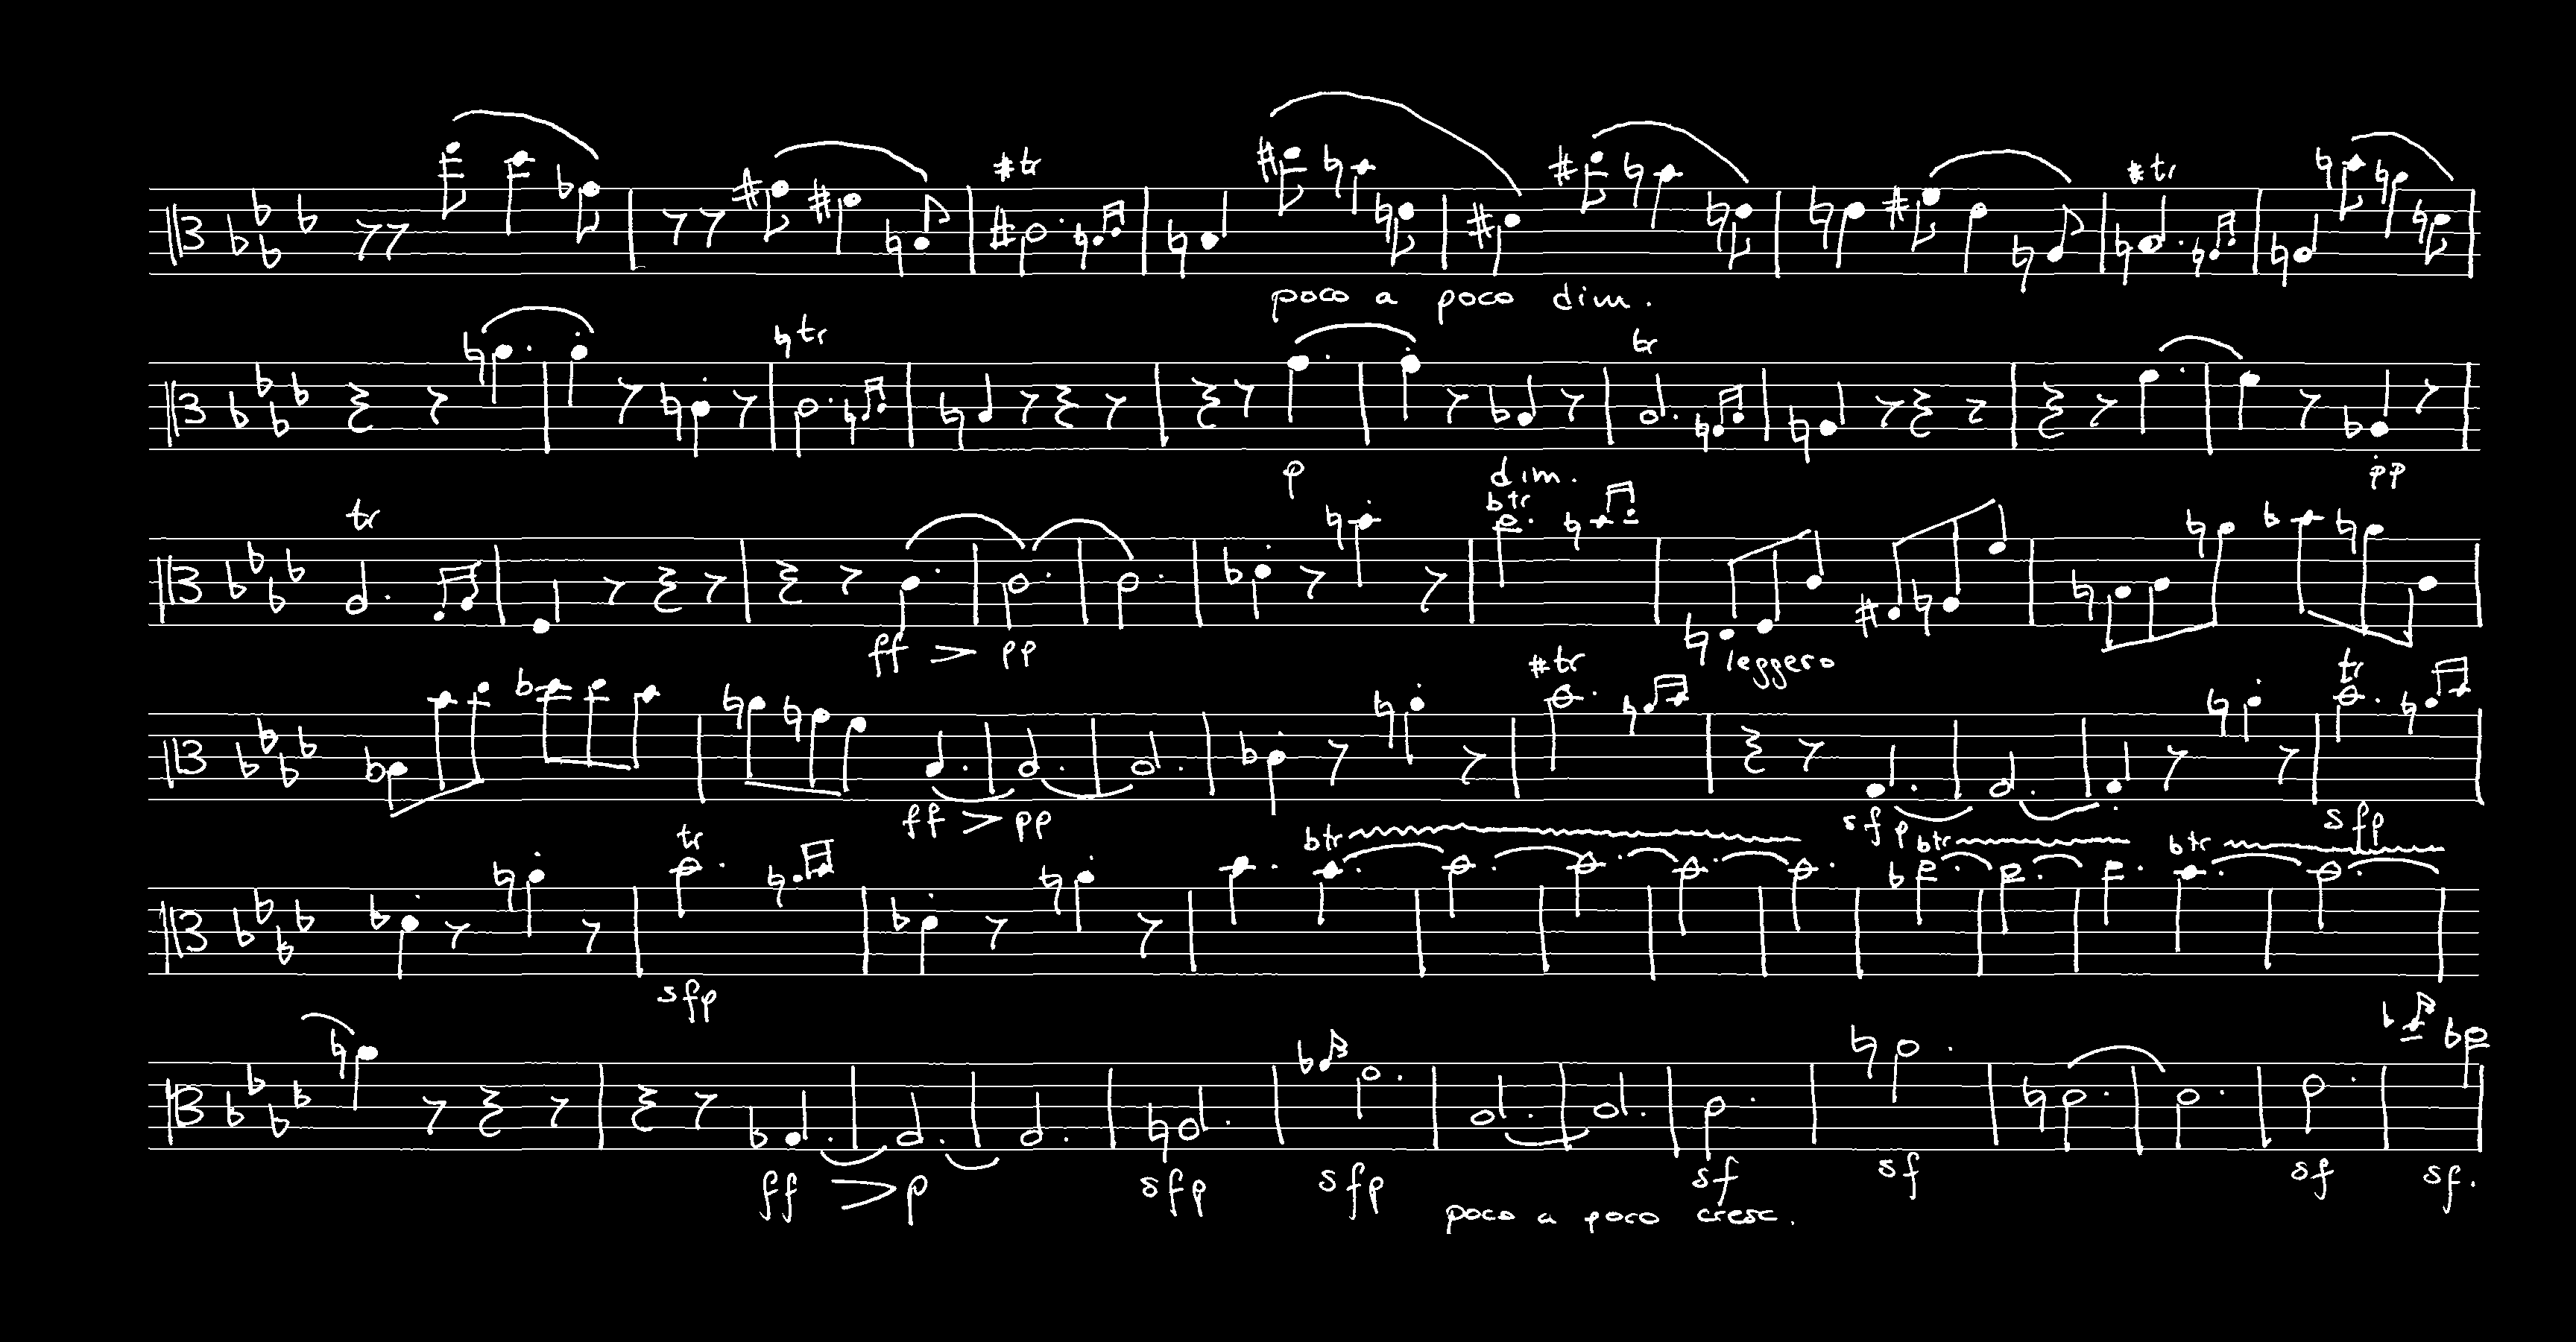 tr tr
poco a poco dim.
tr tr
p dim. pp
tr tr
ff pp leggero
tr tr
ff pp sfp sfp
tr tr tr tr
sfp
ff p sfp sfp sf sf sf sf.
poco a poco cresc.